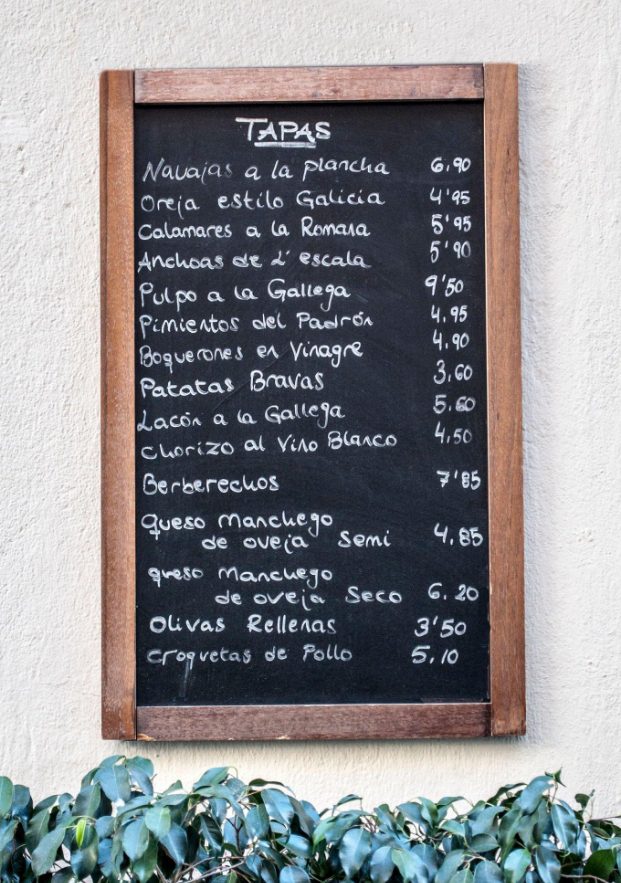 TAPAS
Navajas a la plancha 6.90
Oreja estilo Galicia 4'95
Calamares a la Romana 5'95
Anchoas de L' escala 5'90
Pulpo a la Gallega 9'50
Pimientos del Padrón 4.95
Boquerones en Vinagre 4.90
Patatas Bravas 3.60
Lacón a la Gallega 5.60
Chorizo al Vino Blanco 4.50
Berberechos 7'85
queso Manchego
de oveja Semi 4.85
queso Manchego
de oveja Seco 6.20
Olivas Rellenas 3'50
Croquetas de Pollo 5.10